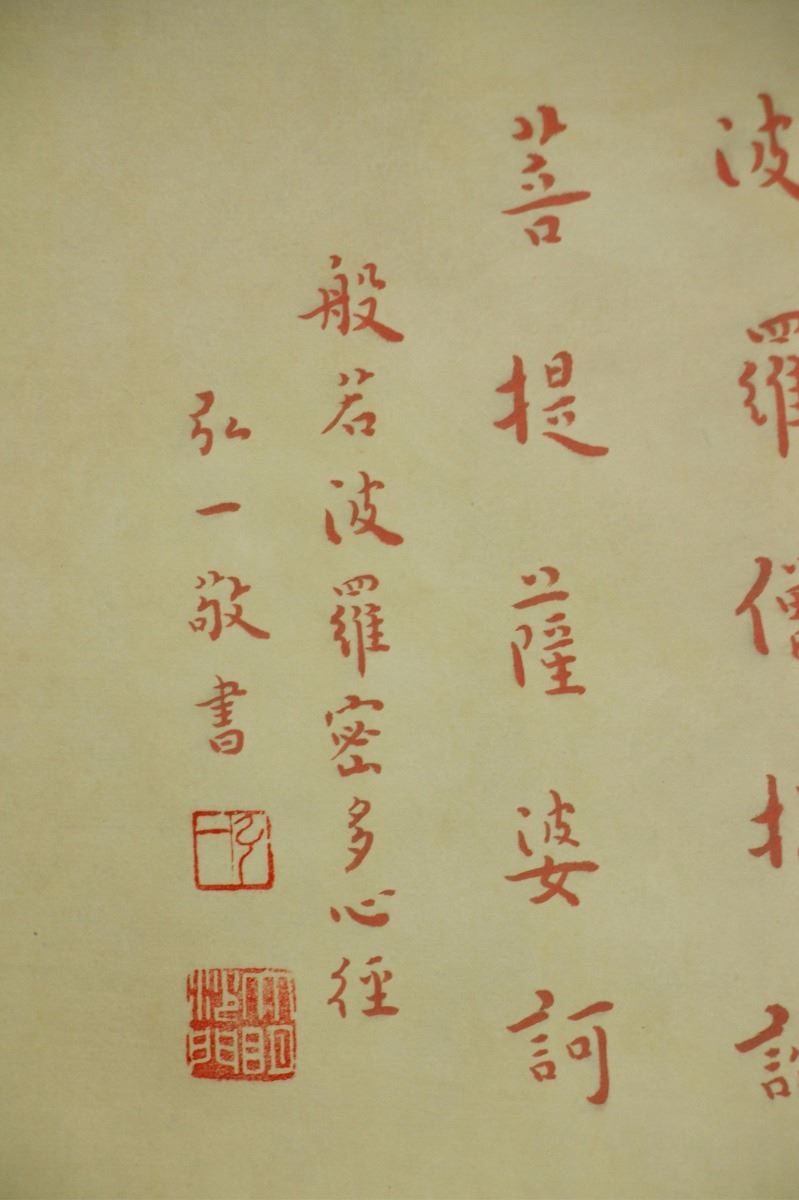 波羅僧揭諦
菩提薩婆訶
般若波羅密多心徑
弘一敬書
弘一